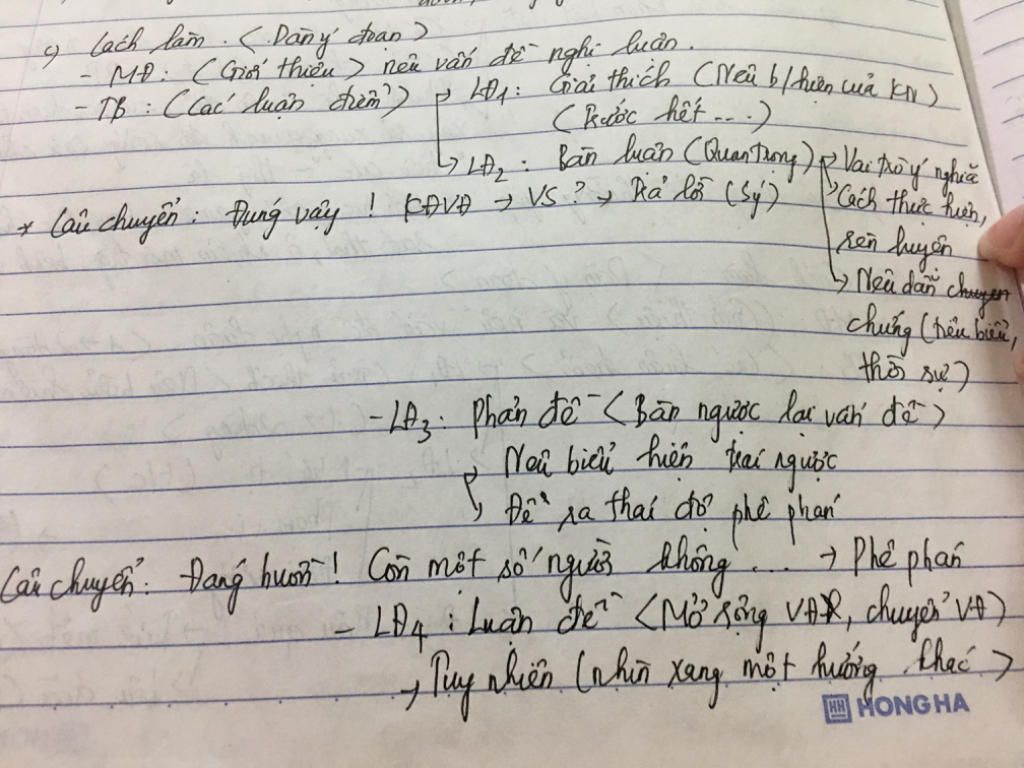 c) Cách làm. (Dàn ý đoạn)
- MĐ: (Giới thiệu) nêu vấn đề nghị luận.
- TB: (Các luận điểm) → LĐ1: Giải thích (Nêu b/hiện của KN)
(Trước hết ....)
→ LĐ2: Bàn luận (Quan trọng) → Vai trò ý nghĩa
* Câu chuyển: Đúng vậy! KĐVĐ → VS? → Trả lời (Sý) → Cách thực hiện,
rèn luyện
→ Nêu dẫn
chứng (tiêu biểu,
thời sự)
- LĐ3: Phản đề (Bàn ngược lại vấn đề)
→ Nêu biểu hiện trái ngược
→ Đề ra thái độ phê phán
Câu chuyển: Đáng buồn! Còn một số người không .... → Phê phán
- LĐ4: Luận đề (Mở rộng VĐ, chuyển VĐ)
→ Tuy nhiên (nhìn xang một hướng khác)
HH HONG HA